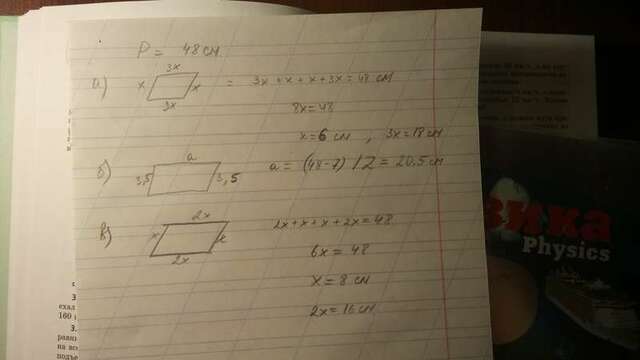 P = 48 см
а)
3x
x
x
3x
= 3x + x + x + 3x = 48 см
8x = 48
x = 6 см , 3x = 18 см
б)
a
3,5
3,5
a = (48-7) / 2 = 20,5 см
в)
2x
x
x
2x
2x + x + x + 2x = 48
6x = 48
x = 8 см
2x = 16 см
зика
Physics
3
ехал
160
3.
равни
на вс
подъе